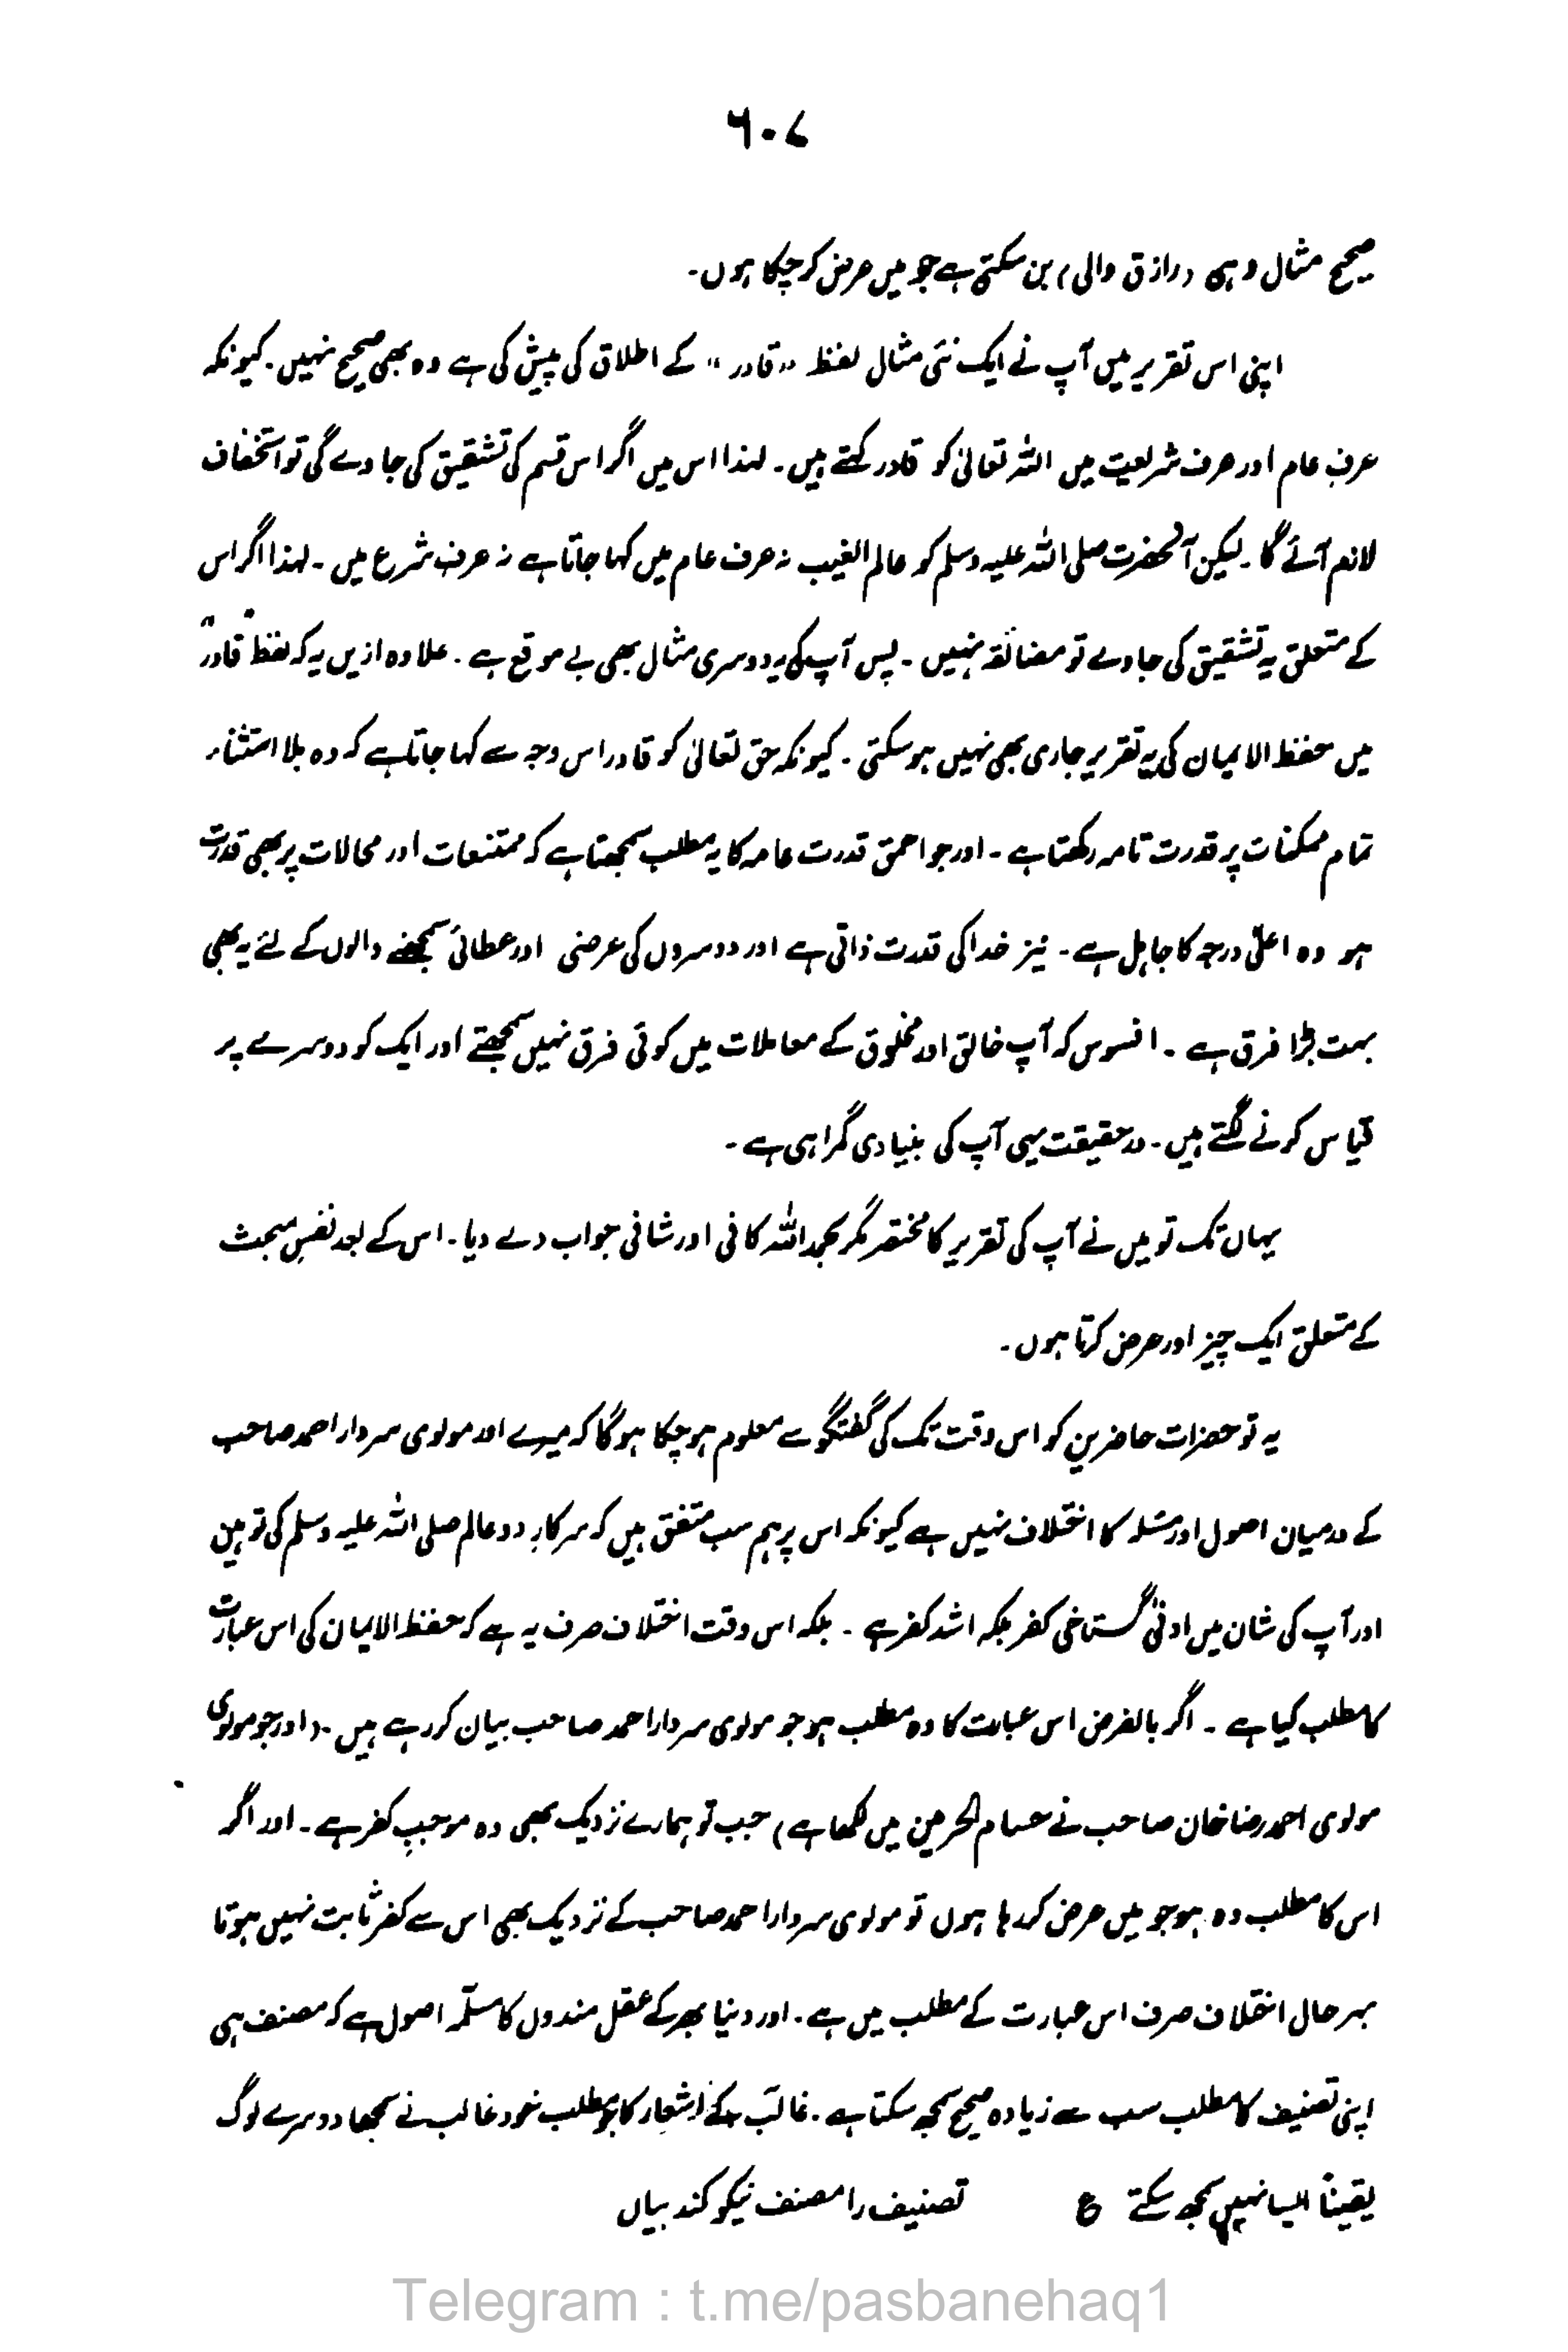 ۶۰۷
صحیح مثال وہی (رازق والی) بن سکتی ہے جو میں عرض کر چکا ہوں۔
اپنی اس تقریر میں آپ نے ایک نئی مثال لفظ "قادر" کے اطلاق کی پیش کی ہے وہ بھی صحیح نہیں۔ کیونکہ
عرف عام اور عرف شریعت میں اللہ تعالیٰ کو قادر کہتے ہیں۔ لہذا اس میں اگر اس قسم کی تشقیق کی جاوے گی تو استخفاف
لازم آئے گا۔ لیکن آنحضرت صلی اللہ علیہ وسلم کو عالم الغیب نہ عرف عام میں کہا جاتا ہے نہ عرف شرع میں۔ لہذا اگر اس
کے متعلق یہ تشقیق کی جاوے تو مضائقہ نہیں۔ پس آپ کی یہ دوسری مثال بھی بے موقع ہے۔ علاوہ ازیں یہ کہ لفظ "قادر"
میں حفظ الایمان کی یہ تقریر جاری بھی نہیں ہو سکتی۔ کیونکہ حق تعالیٰ کو قادر اس وجہ سے کہا جاتا ہے کہ وہ بلا استثناء
تمام ممکنات پر قدرت تامہ رکھتا ہے۔ اور جو احمق قدرت عامہ کا یہ مطلب سمجھتا ہے کہ ممتنعات اور محالات پر بھی قدرت
ہو وہ اعلیٰ درجہ کا جاہل ہے۔ نیز خدا کی قدرت ذاتی ہے اور دوسروں کی عرضی اور عطائی سمجھنے والوں کے لئے یہ بھی
بہت بڑا فرق ہے۔ افسوس کہ آپ خالق اور مخلوق کے معاملات میں کوئی فرق نہیں سمجھتے اور ایک کو دوسرے پر
قیاس کرنے لگتے ہیں۔ درحقیقت یہی آپ کی بنیادی گمراہی ہے۔
یہاں تک تو میں نے آپ کی تقریر کا مختصر مگر بحمد اللہ کافی اور شافی جواب دے دیا۔ اس کے بعد نفسِ مبحث
کے متعلق ایک چیز اور عرض کرتا ہوں۔
یہ تو حضرات حاضرین کو اس وقت تک کی گفتگو سے معلوم ہو چکا ہوگا کہ میرے اور مولوی سردار احمد صاحب
کے درمیان اصول اور مسئلہ کا اختلاف نہیں ہے کیونکہ اس پر ہم سب متفق ہیں کہ سرکارِ دو عالم صلی اللہ علیہ وسلم کی توہین
اور آپ کی شان میں ادنیٰ گستاخی کفر بلکہ اشد کفر ہے۔ بلکہ اس وقت اختلاف صرف یہ ہے کہ حفظ الایمان کی اس عبارت
کا مطلب کیا ہے۔ اگر بالفرض اس عبارت کا وہ مطلب ہو جو مولوی سردار احمد صاحب بیان کر رہے ہیں۔ (اور جو مولوی
مولوی احمد رضا خان صاحب نے حسام الحرمین میں لکھا ہے) جب تو ہمارے نزدیک بھی وہ موجبِ کفر ہے۔ اور اگر
اس کا مطلب وہ ہو جو میں عرض کر رہا ہوں تو مولوی سردار احمد صاحب کے نزدیک بھی اس سے کفر ثابت نہیں ہوتا
بہرحال اختلاف صرف اس عبارت کے مطلب میں ہے۔ اور دنیا بھر کے عقل مندوں کا مسلّمہ اصول ہے کہ مصنف ہی
اپنی تصنیف کا مطلب سب سے زیادہ صحیح سمجھ سکتا ہے۔ غالب کے اشعار کا جو مطلب خود غالب نے سمجھا دوسرے لوگ
یقیناً ایسا نہیں سمجھ سکتے ع تصنیف را مصنف نیکو کند بیاں
Telegram : t.me/pasbanehaq1